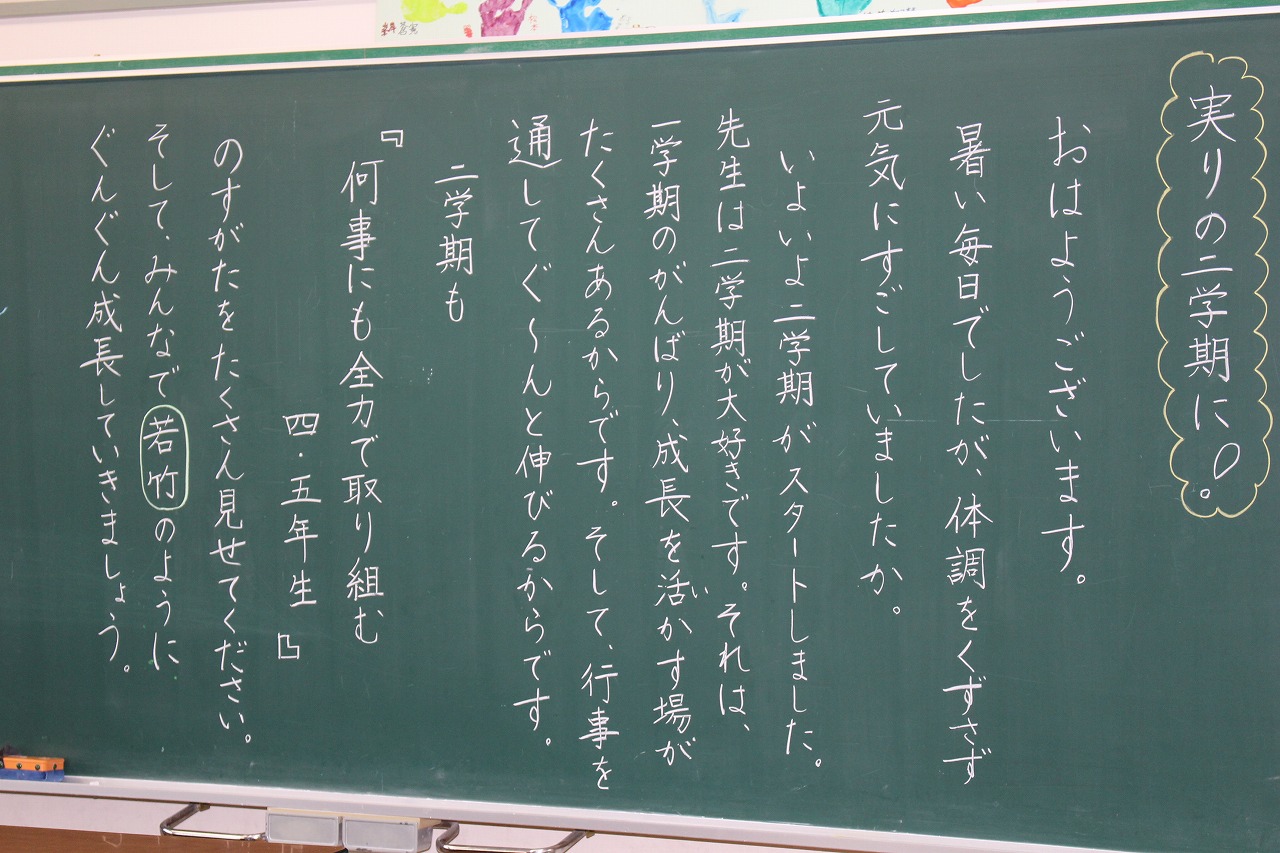 実りの二学期に!。
おはようございます。
暑い毎日でしたが、体調をくずさず
元気にすごしていましたか。
いよいよ二学期がスタートしました。
先生は二学期が大好きです。それは、
一学期のがんばり、成長を活かす場が
い
たくさんあるからです。そして、行事を
通してぐ～んと伸びるからです。
二学期も
『何事にも全力で取り組む
四・五年生』
のすがたをたくさん見せてください。
そして、みんなで若竹のように
ぐんぐん成長していきましょう。